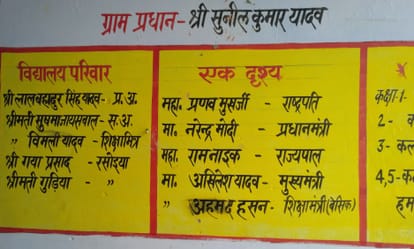 ग्राम प्रधान - श्री सुनील कुमार यादव
विद्यालय परिवार
श्री लालबहादुर सिंह यादव - प्र. अ.
श्रीमती सुषमा जायसवाल - स. अ.
" विमली यादव - शिक्षामित्र
श्री गया प्रसाद - रसोइया
श्रीमती गुड़िया - "
एक दृश्य
महा. प्रणव मुखर्जी - राष्ट्रपति
मा. नरेन्द्र मोदी - प्रधानमंत्री
महा. रामनाइक - राज्यपाल
मा. अखिलेश यादव - मुख्यमंत्री
" अहमद हसन - शिक्षामंत्री (बेसिक)
कक्षा-1
2-
3-
4,5-